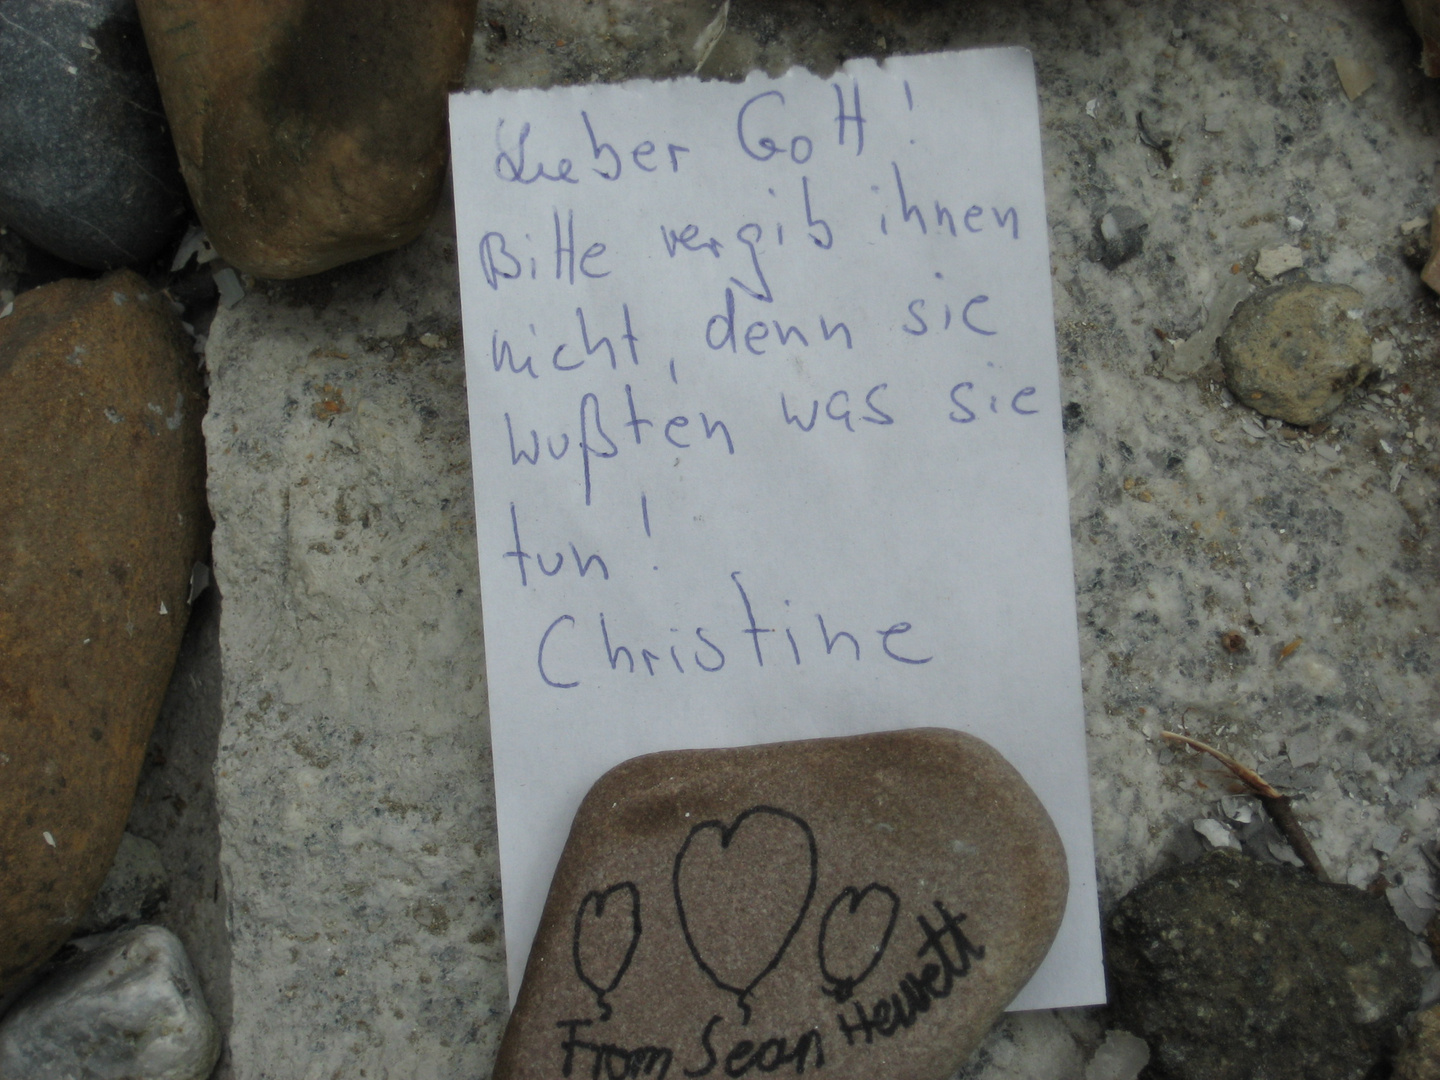 Lieber Gott!
Bitte vergib ihnen
nicht, denn sie
wußten was sie
tun!
Christine
From Sean Hewett